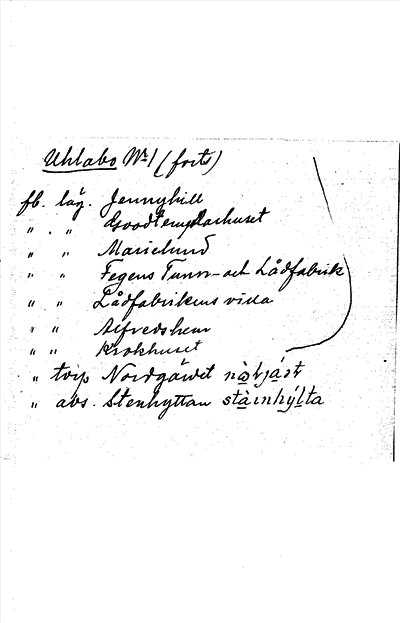 Uhlabo Nr 1 (forts)
fb. läg. Jennyhill
" . " Goodtemplarhuset
" " Marielund
" " Fegens Tunn- och Lådfabrik
" " Lådfabrikens villa
" " Alfredshem
" " Krokhuset
" torp Nordgärdet
" avs. Stenhyttan